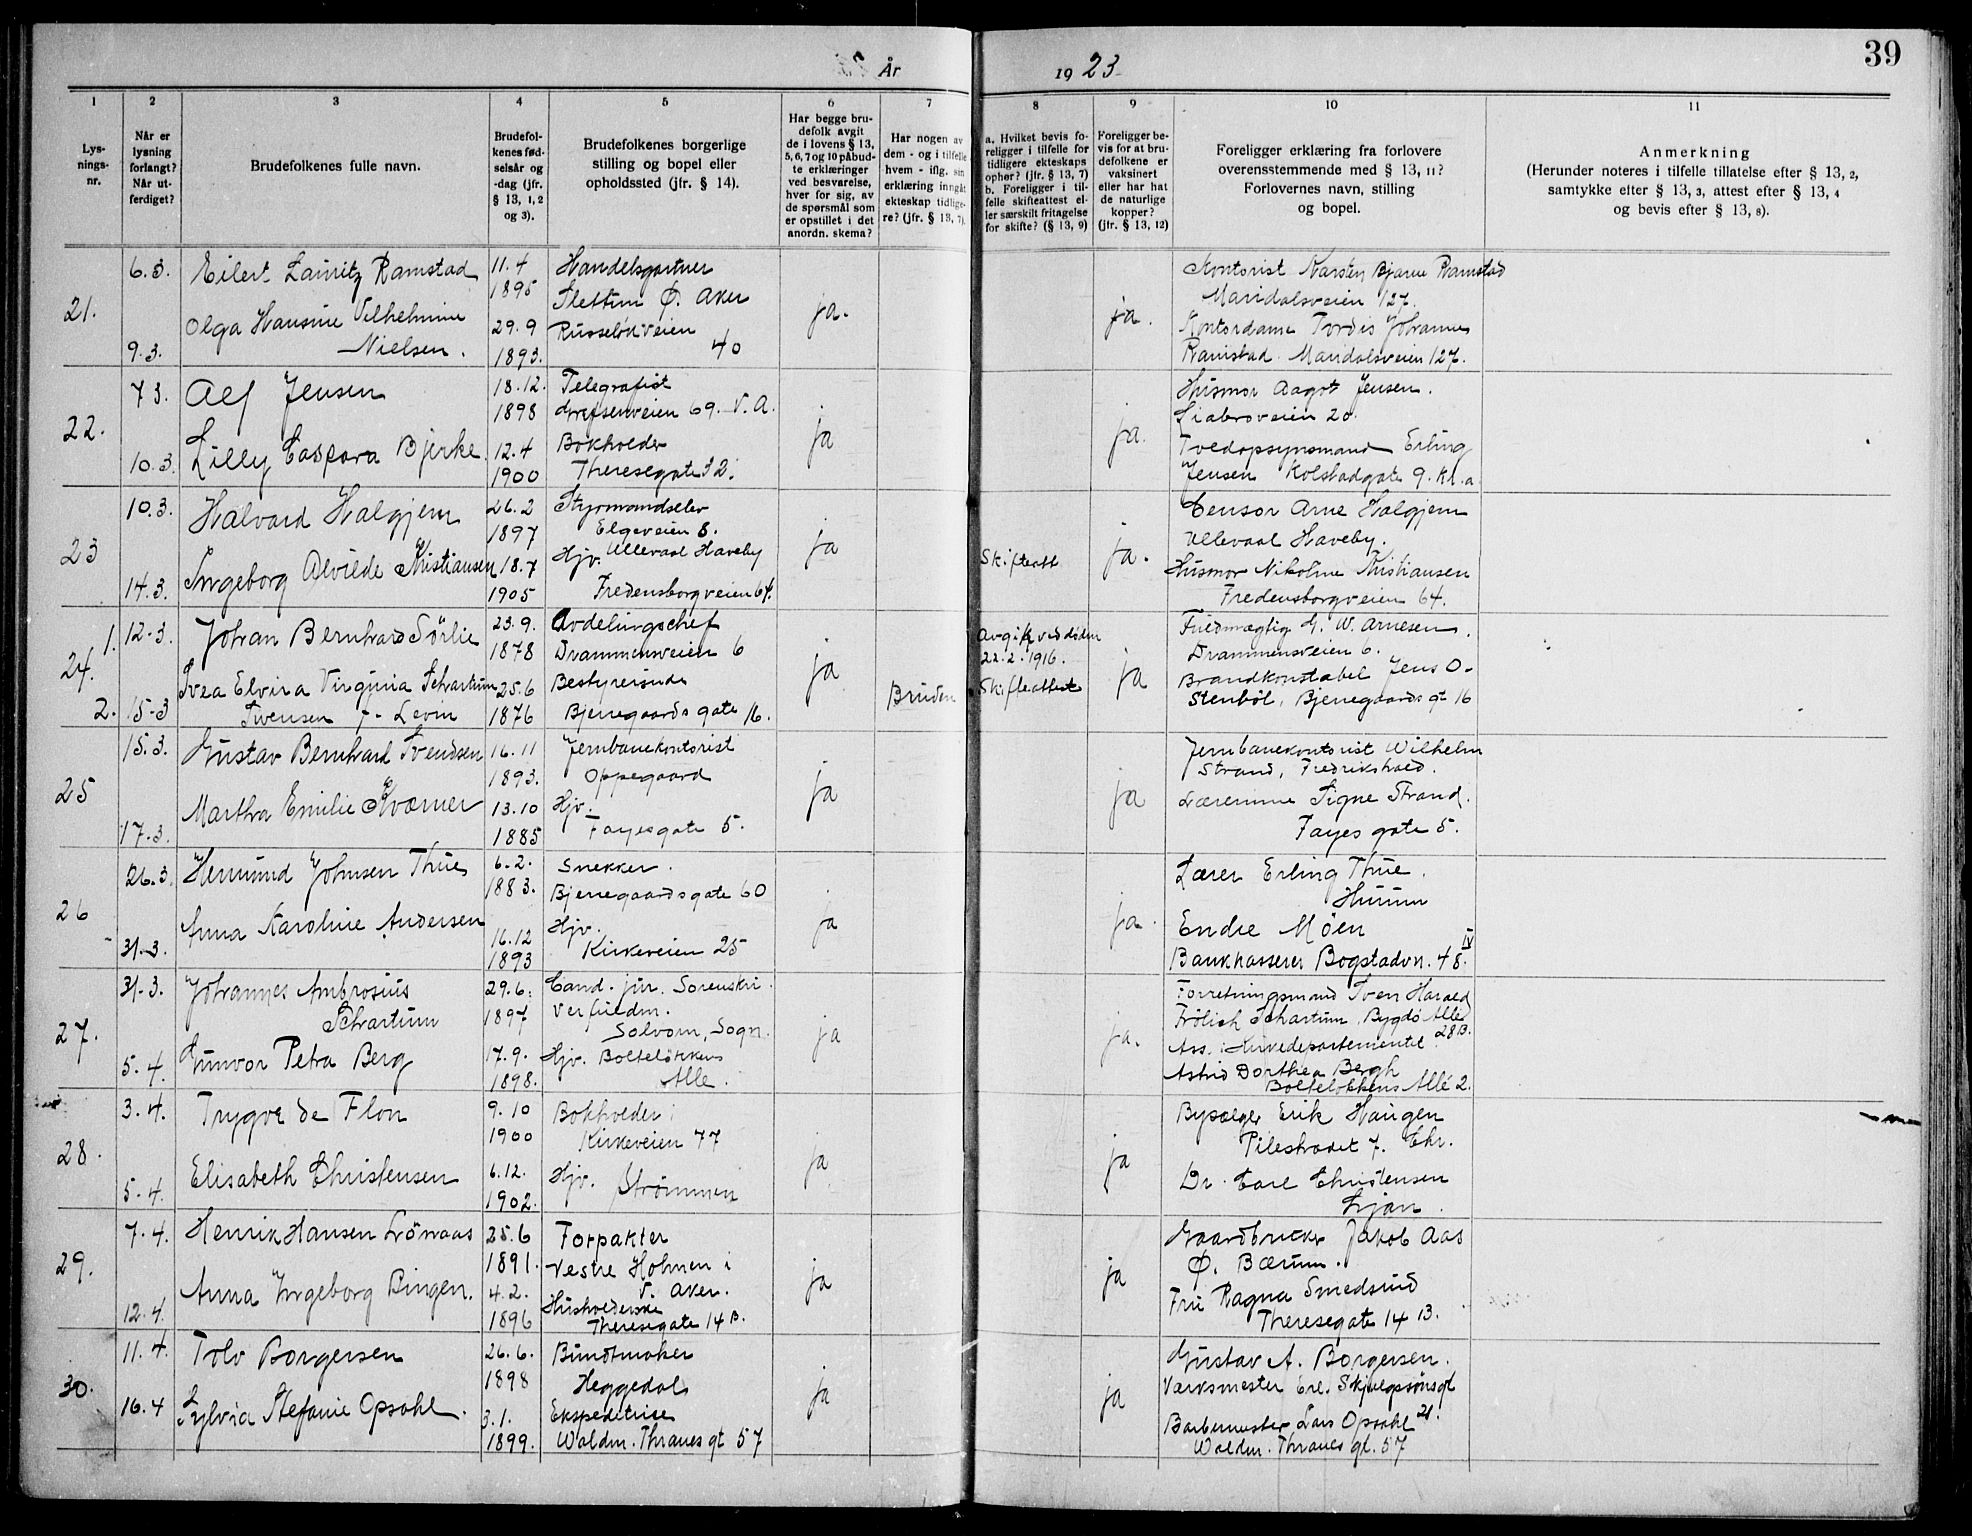 39
År
19 23
1
2
3
4
5
6
7
8
9
10
11
Lys-
nings-
nr.
Når er
lysning
forlangt?
Når ut-
ferdiget?
Brudefolkenes fulle navn.
Brudefol-
kenes fød-
selsår og
-dag (jfr.
§ 13, 1, 2
og 3).
Brudefolkenes borgerlige
stilling og bopel eller
opholdssted (jfr. § 14).
Har begge bru-
defolk avgit
de i lovens § 13,
5, 6, 7 og 10 påbud-
te erklæringer
ved besvarelse,
hver for sig, av
de spørsmål som
er opstillet i det
anordn. skema?
Har nogen av
dem - og i tilfelle
hvem - iflg. sin
erklæring inngåt
ekteskap tidlige-
re? (jfr. § 13, 7).
a. Hvilket bevis fo-
religger i tilfelle for
tidligere ekteskaps
ophør? (jfr. § 13, 7)
b. Foreligger i til-
felle skifteattest el-
ler særskilt fritagelse
for skifte? (§ 13, 9)
Foreligger be-
vis for at bru-
defolkene er
vaksinert
eller har hat
de naturlige
kopper?
(jfr. § 13, 12)
Foreligger erklæring fra forlovere
overensstemmende med § 13, 11?
Forlovernes navn, stilling
og bopel.
Anmerkning
(Herunder noteres i tilfelle tillatelse efter § 13, 2,
samtykke efter § 13, 3, attest efter § 13, 4
og bevis efter § 13, 8).
21.
6.3.
9.3.
Eilert Lauritz Ramstad
Olga Hansine Vilhelmine
Nielsen.
11.4
1895
29.9
1893.
Handelsgartner
Slettun Ø. Aker
Russeløkveien
40
ja.
ja.
Kontorist Karsten Bjarne Ramstad
Maridalsveien 127.
Kontordame Tordis Johanne
Ramstad. Maridalsveien 127.
22.
7.3.
10.3.
Alf Jensen
Lilly Caspara Bjerke.
18.12.
1898
12.4
1900
Telegrafist
Grefsenveien 69. V.A.
Bokholder
Theresegate 32.
ja
ja.
Husmor Aagot Jensen.
Liabroveien 20.
Tvedopsynsmand Erling
Jensen Kolstadgate 9. kl. a
23
10.3.
14.3.
Halvard Halgjem
Ingeborg Alvilde Kristiansen
26.2
1897
18.7
1905
Styrmandselev
Elgeveien 8.
Ullevaal Haveby
Hjv.
Fredensborgveien 64.
ja
Skifteatt
ja.
Censor Arne Halgjem
Ullevaal Haveby.
Husmor Nikoline Kristiansen
Fredensborgveien 64.
24.
1.
2.
12-3.
15-3
Johan Bernhard Sörlie
Svea Elvira Virginia Schartum
Swensen f. Levin
23.9.
1878
25.6
1876
Avdelingschef
Drammensveien 6
Bestyrerinde
Bjerregaards gate 16.
ja
Bruden
Avgik ved döden
22.2.1916.
Skifteattest
ja
Fuldmægtig G. W. Arnesen.
Drammensveien 6.
Brandkonstabel Jens O-
Stenböl, Bjerregaards gt 16
25
15.3.
17.3.
Gustav Bernhard Svendsen
Martha Emilie Kværner
16.11
1893.
13.10
1885
Jernbanekontorist
Oppegaard
Hjv.
Fayesgate 5.
ja
ja
Jernbanekontorist Wilhelm
Strand, Fredrikshald.
Lærerinne Signe Strand.
Fayes gate 5.
26
26.3.
31.3.
Hermund Johnsen Thue
Anna Karoline Andersen
6.2.
1883.
16.12
1893
Snekker.
Bjerregaardsgate 60
Hjv.
Kirkeveien 25
ja
ja.
Lærer Erling Thue.
Hurum
Endre Möen
Bankkasserer Bogstadvn. 48. IV
27.
31-3.
5-4.
Johannes Ambrosius
Schartum
Gunvor Petra Berg
29.6.
1897
17.9.
1898.
Cand. jur. Sorenskri
verfuldm.
Solvorn, Sogn.
Hjv. Bolteløkkens
Alle.
ja
ja.
Forretningsmand Sven Harald
Frölich Schartum, Bygdø Allé
28B.
Ass. i Kirkedepartementet
Astrid Dorthea Bergh
Bolteløkkens Allé 2.
28.
3.4.
5-4.
Trygve de Flon
Elisabeth Christensen
9.10
1900
6.12.
1902.
Bokholder
Kirkeveien 77
Hjv. Strømmen
ja
ja
Bysælger Erik Haugen
Pilestrædet 7. Chr.
Dr. Carl Christensen
Ljan.
29.
7-4.
12.4.
Henrik Hansen Lönnaas
Anna Ingeborg Bingen.
25.6
1891.
4.2.
1896
Forpakter
Vestre Holmen i
V. Aker.
Husholderske
Theresegate 14 B.
ja
ja
Gaardbruker Jakob Aas
Ø. Bærum.
Fru Ragna Smedsrud
Theresegate 14 B.
30.
11.4.
16.4
Tolv Borgersen
Sylvia Stefanie Opsahl.
26.6.
1898
3.1.
1899.
Buntmaker
Heggedal
Ekspeditrise
Waldm. Thranes gt 57
ja
ja
Gustav A. Borgersen.
Værksmester Erl. Skjalgsönsgt
21.
Barbermester Lars Opsahl
Waldm. Thranes gt. 57